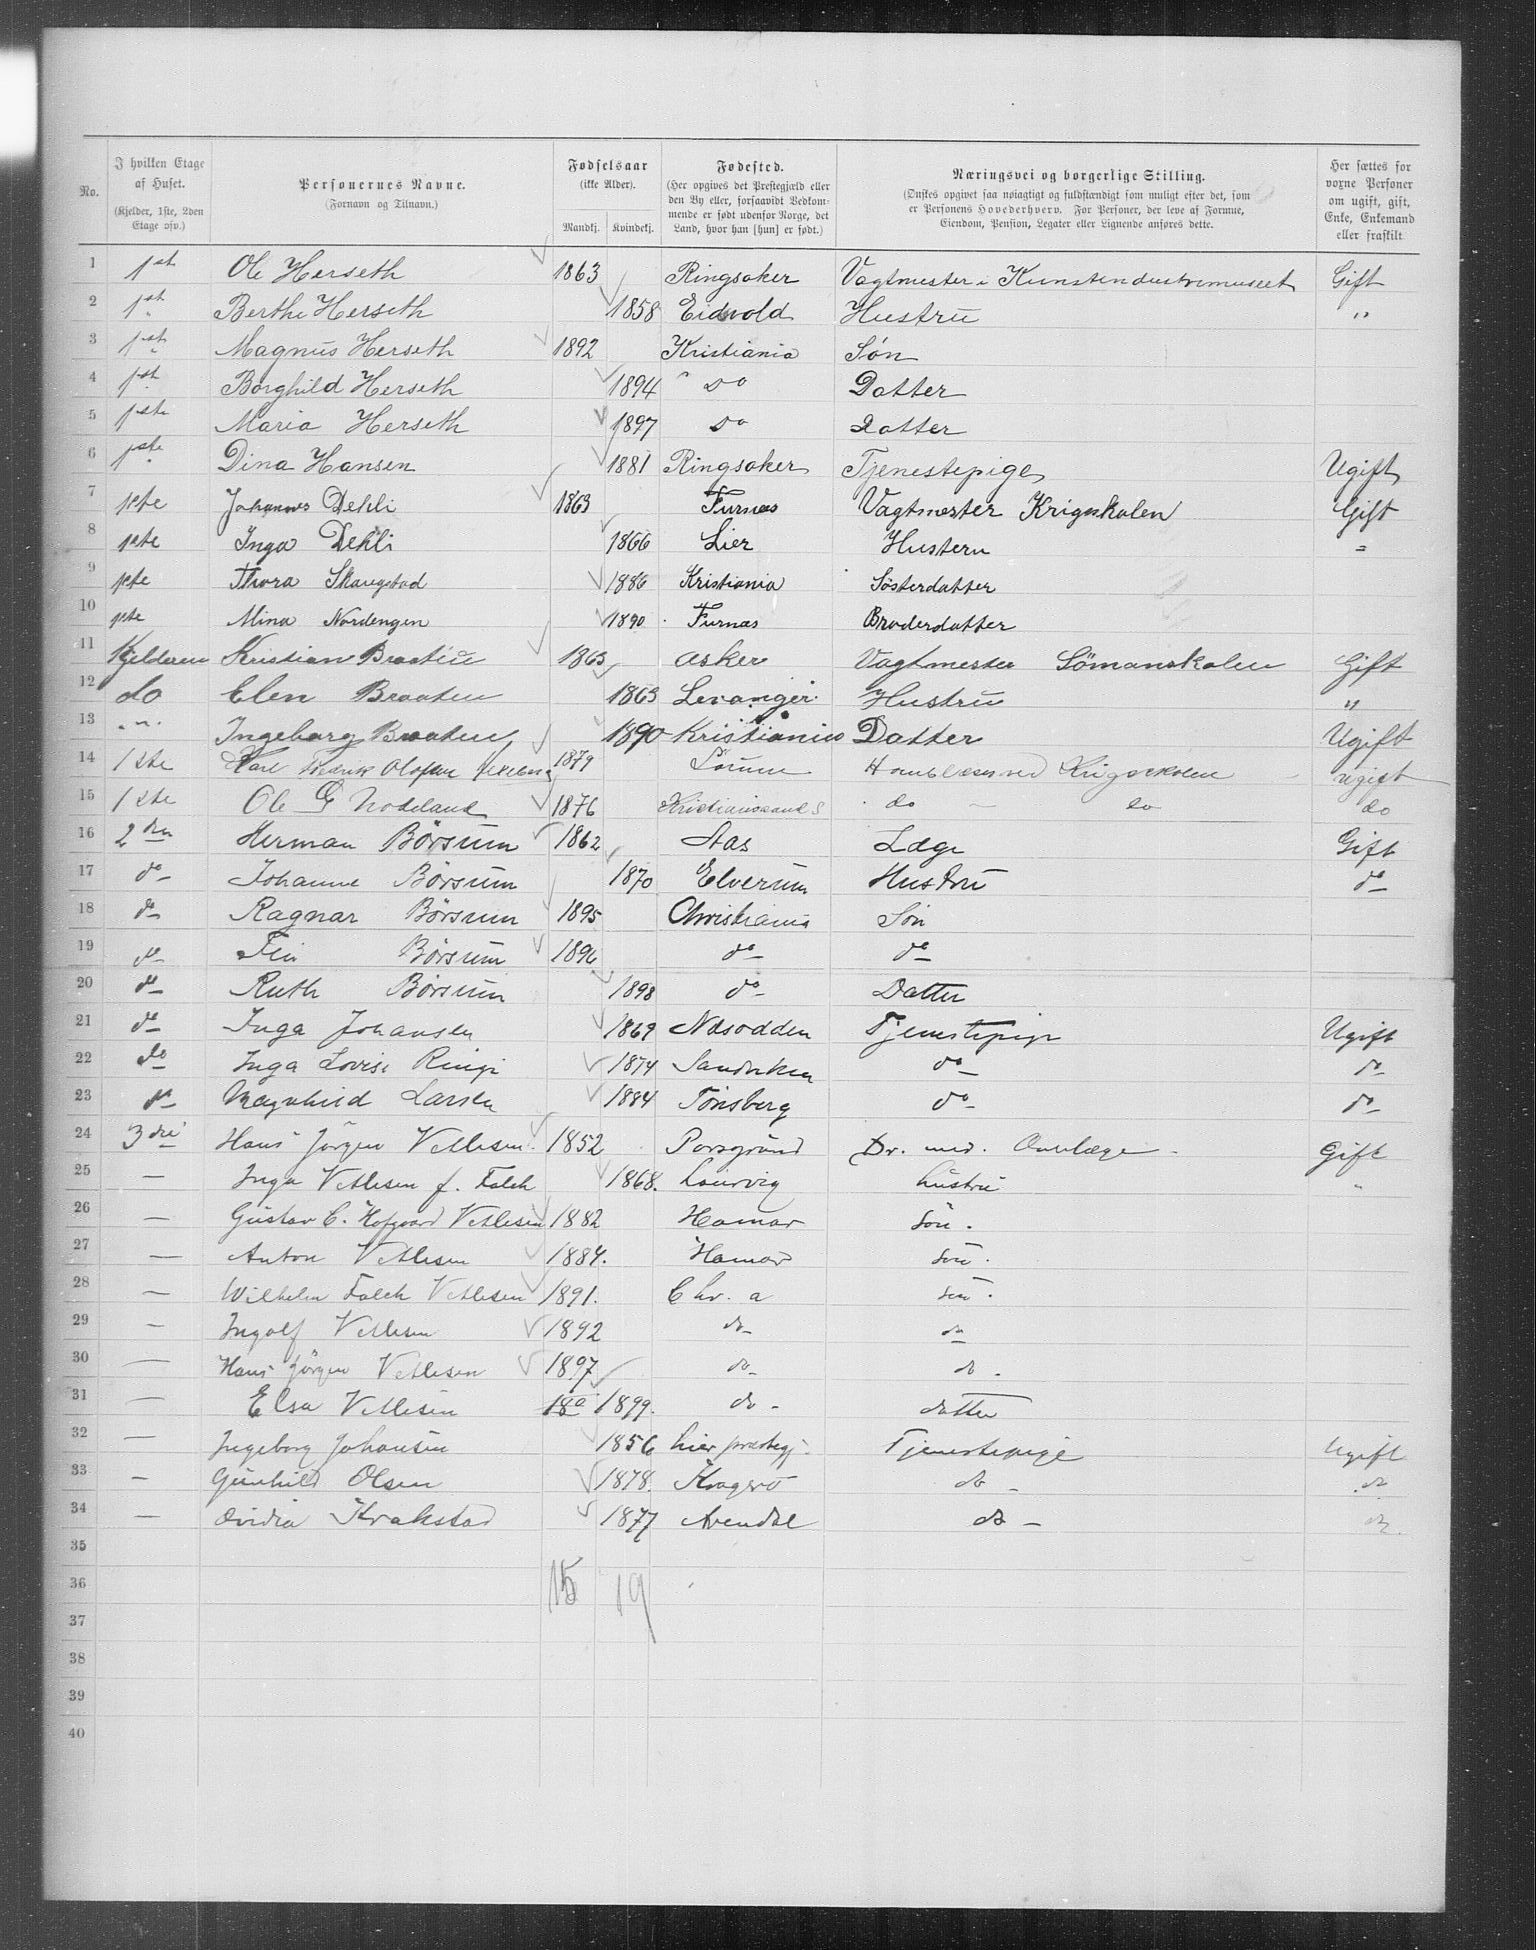 No. | I hvilken Etage af Huset. (Kjelder, 1ste, 2den Etage osv.) | Personernes Navne. (Fornavn og Tilnavn.) | Fødselsaar (ikke Alder). Mandkj. Kvindekj. | Fødested. (Her opgives det Prestegjæld eller den By eller, forsaavidt Vedkommende er født udenfor Norge, det Land, hvor han [hun] er født.) | Næringsvei og borgerlige Stilling. (Ønskes opgivet saa nøiagtigt og fuldstændigt som muligt efter det, som er Personens Hovederhverv. For Personer, der leve af Formue, Eiendom, Pension, Legater eller Lignende anføres dette. | Her sættes for voxne Personer om ugift, gift, Enke, Enkemand eller fraskilt
1 1st Ole Herseth 1863 Ringsaker Vagtmester i Kunstendustrimuseet Gift
2 1st Berthe Herseth 1858 Eidsvold Hustru "
3 1st Magnus Herseth 1892 Kristiania Søn
4 1st Borghild Herseth 1894 Do Datter
5 1ste Maria Herseth 1897 Do Datter
6 1ste Dina Hansen 1881 Ringsaker Tjenestepige Ugift
7 1ste Johannes Dehli 1863 Furnæs Vagtmester Krigsskolen Gift
8 1ste Inga Dehli 1866 Lier Hustern =
9 1ste Thora Skaugstad 1886 Kristiania Søsterdatter
10 1ste Mina Nordengen 1890 Furnæs Broderdatter
11 Kjelderen Kristian Braaten 1863 Asker Vagtmester Sömanskolen Gift
12 do Elen Braaten 1863 Levanger Hustru "
13 " Ingeborg Braaten 1890 Kristiania Datter Ugift
14 1ste Karl Fredrik Olofsen 1879 Hornblæser ved Krigsskolen ugift
15 1ste Ole G Nodeland 1876 Kristianssand S do do do
16 2den Herman Børsum 1862 Aas Læge Gift
17 do Johanne Børsum 1870 Elverum Hustru do
18 do Ragnar Børsum 1895 Christiania Søn
19 do Fin Børsum 1896 do do
20 do Ruth Børsum 1898 do Datter
21 do Inga Johansen 1869 Næsodden Tjenestepige Ugift
22 do Inga Lovise Ringi 1874 do do
23 do Magnhild Larsen 1884 Tønsberg do do
24 3die Hans Jörgen Vetlesen 1852 Porsgrund Dr. med. Overlæge Gift
25 — Inga Vetlesen f. Falck 1868. Laurvig hustru "
26 — Gustav C. Hofgaard Vetlesen 1882 Hamar Sön.
27 — Anton Vetlesen 1884. Hamar sön.
28 — Wilhelm Falck Vetlesen 1891. Chr. a sön.
29 — Ingolf Vetlesen 1892 do do
30 — Hans Jörgen Vetlesen 1897 do do.
31 — Elsa Vetlesen 18 1899. do - datter
32 — Ingeborg Johansen 1856 Lier præstegj. Tjenestepige Ugift
33 — Gunhild Olsen 1878. Kragerö do do
34 — Ovidia Krakstad 1877 Arendal do — do.
35
36 15 19
37
38
39
40